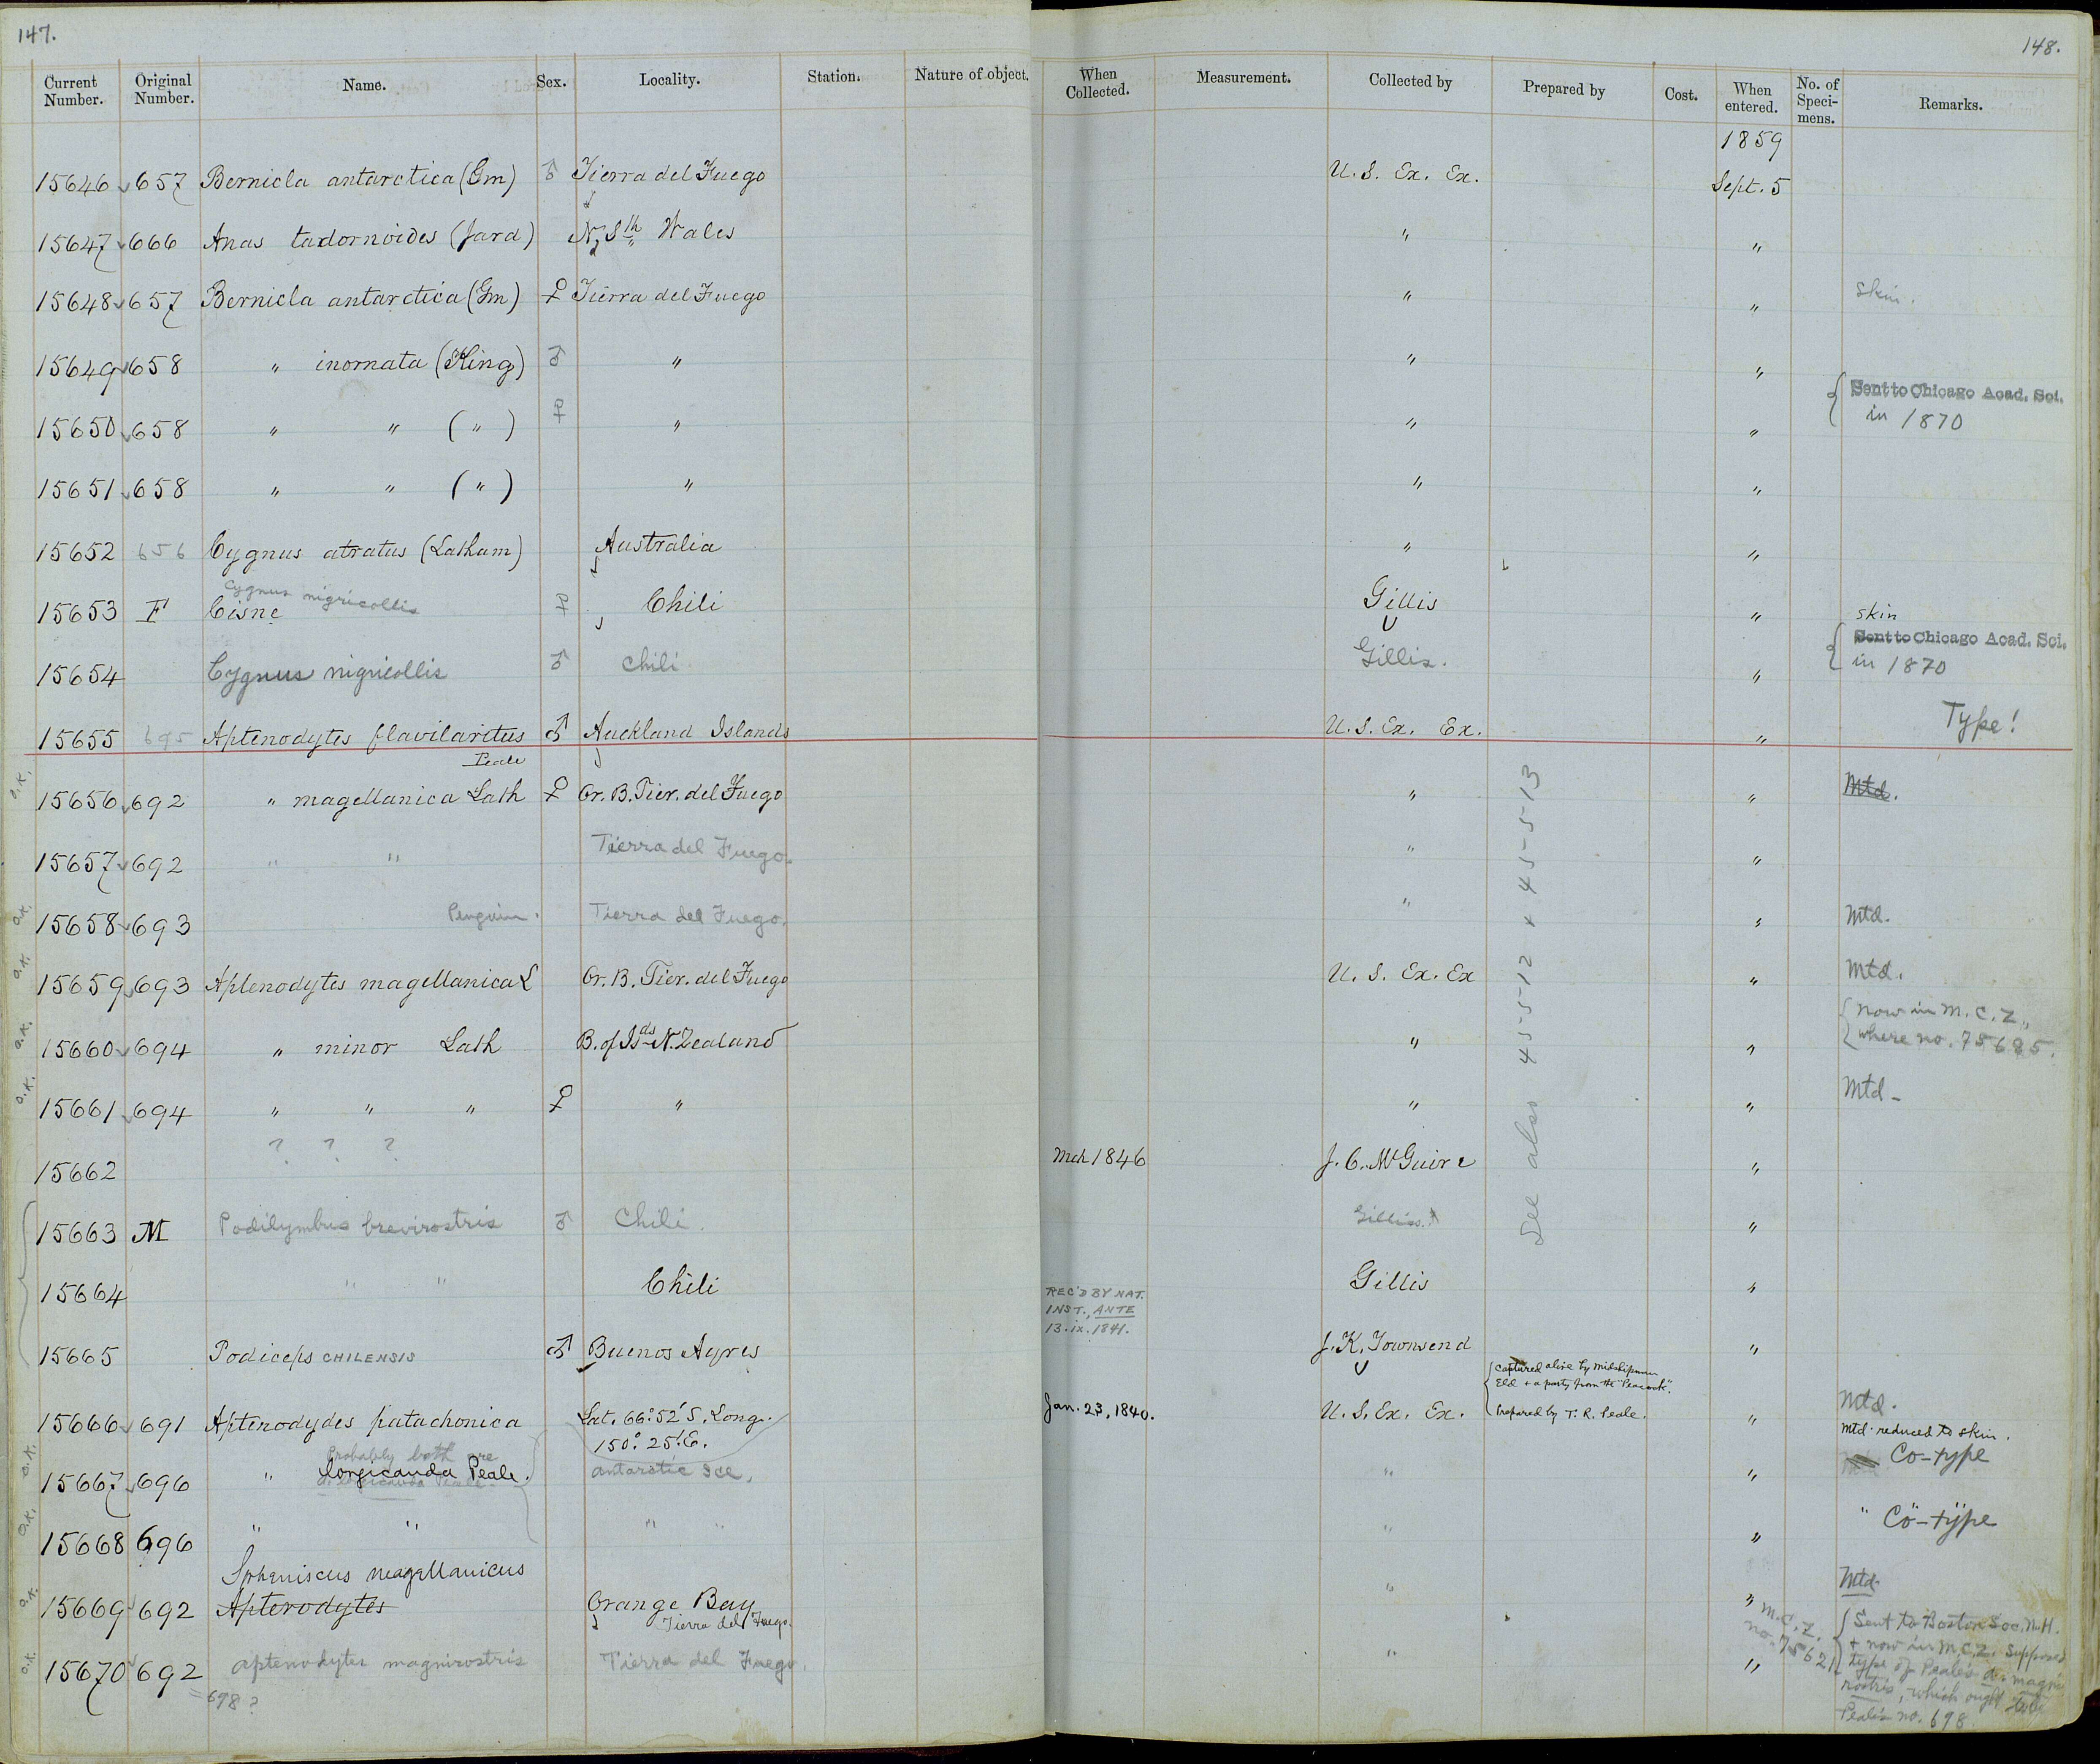 147.
148.
Current Number. Original Number. Name. Sex. Locality. Station. Nature of object. When Collected. Measurement. Collected by Prepared by Cost. When entered. No. of Speci-mens. Remarks.
1859
15646 657 Bernicla antarctica (Gm) ♂ Tierra del Fuego U. S. Ex. Ex. Sept. 5
15647 666 Anas tadornoides (Jard) N. Sth Wales " "
15648 657 Bernicla antarctica (Gm) ♀ Tierra del Fuego " " skin.
15649 658 " inornata (King) ♂ " " "
15650 658 " " ( " ) ♀ " " " { Sent to Chicago Acad. Sci.
in 1870
15651 658 " " ( " ) " " "
15652 656 Cygnus atratus (Latham) Australia " "
Cygnus nigricollis
15653 F Cisne ♀ Chili Gillis " skin
15654 Cygnus nigricollis ♂ Chili Gillis. " { Sent to Chicago Acad. Sci.
in 1870
15655 695 Aptenodytes flavilarvtus ♂ Auckland Islands U. S. Ex. Ex. " Type!
Peale
O.K. 15656 692 " magellanica Lath ♀ Or. B. Tier. del Fuego " " Mtd.
15657 692 " " Tierra del Fuego. " "
O.K. 15658 693 Penguin. Tierra del Fuego. " " Mtd.
O.K. 15659 693 Aptenodytes magellanica L Or. B. Tier. del Fuego U. S. Ex. Ex " Mtd.
O.K. 15660 694 " minor Lath B. of Ids N. Zealand " " { Now in M. C. Z.,
where no. 75685.
O.K. 15661 694 " " " ♀ " " " Mtd-
See also 45-5-12 + 45-5-13
? ? ?
15662 Mch 1846 J. C. McGuire "
15663 M Podilymbus brevirostris ♂ Chili. Gilliss. "
15664 " " Chili Gillis "
REC'D BY NAT.
INST., ANTE
13.ix.1841.
15665 Podiceps CHILENSIS ♂ Buenos Ayres J. K. Townsend "
{ Captured alive by Midshipman
Eld + a party from the "Peacock".
Prepared by T. R. Peale.
15666 691 Aptenodydes patachonica Lat. 66° 52' S. Long. Jan. 23, 1840. U. S. Ex. Ex. " Mtd.
150° 25' E.
mtd. reduced to skin.
Probably both are
O.K. 15667 696 " longicauda Peale. antarctic ice. " " Co-type
O.K. 15668 696 " " " " " " " Co-type
Spheniscus magellanicus
O.K. 15669 692 Apterodytes Orange Bay " " Mtd.
Tierra del Fuego.
O.K. 15670 692 aptenodytes magnirostris Tierra del Fuego. " "
=698?
M.C.Z.
no. 75621
{ Sent to Boston Soc. N. H.
+ now in M.C.Z. Supposed
type of Peale's A. magni
rostris, which ought
Peale's no. 698